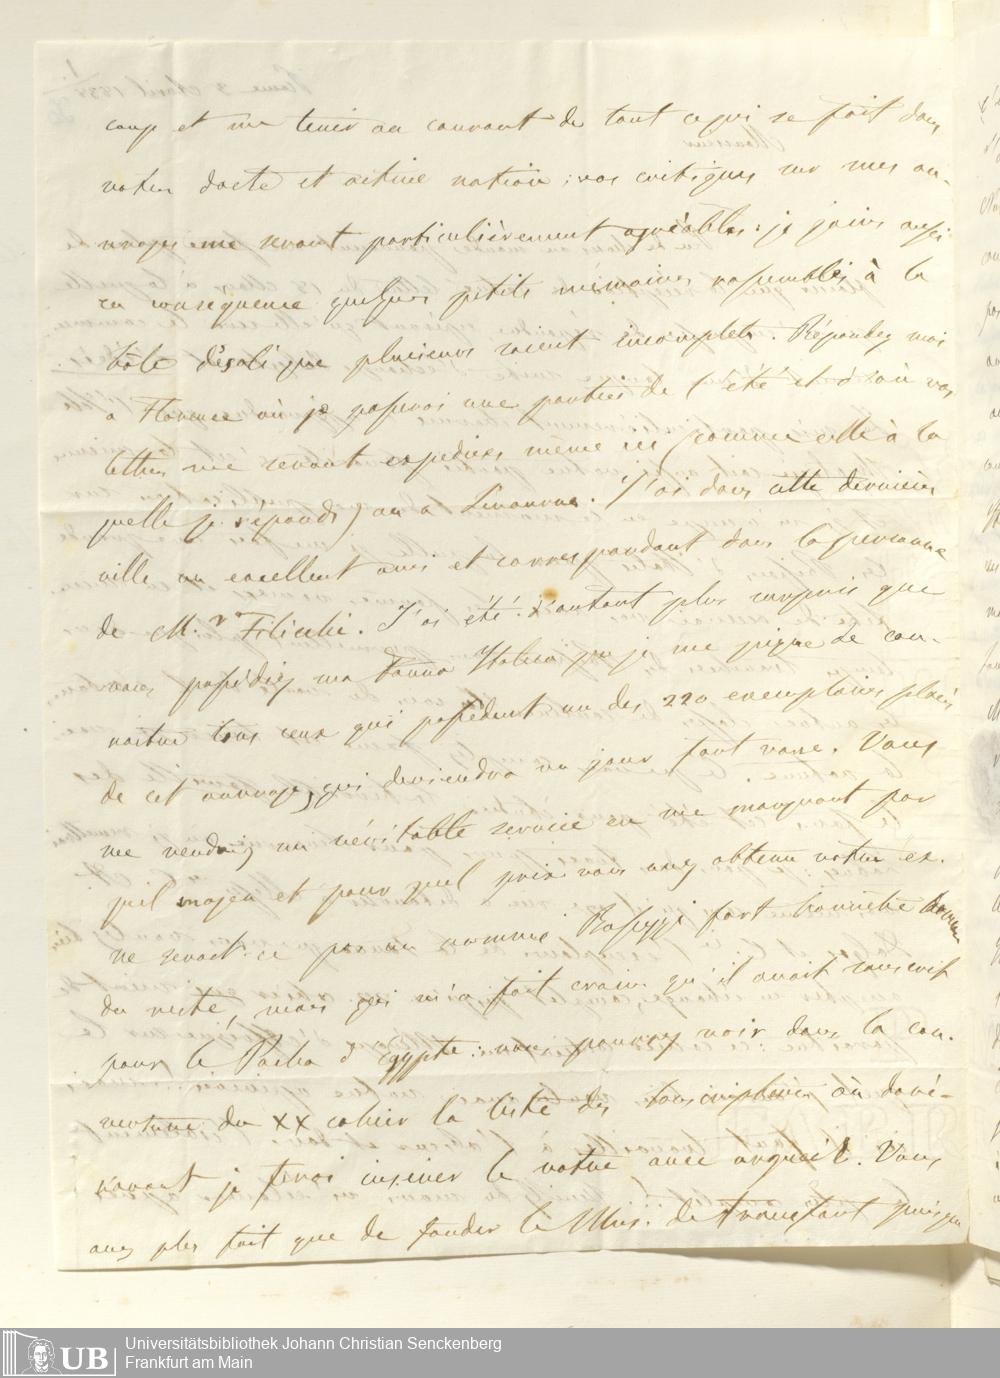 coup et me tenir au courant de tout ce qui se fait dans
votre docte et active nation; vos critiques sur mes ou-
vrages me seront particulièrement agréables: je joins aussi
en conséquence quelques petits mémoires rassemblés à la
hâte désolé que plusieurs soient incomplets. Répondez moi
a Florence où je passerai une partie de l'été et d'où vos
lettres me seront expédiées même ici (comme celle à la
quelle je réponds) ou a Livourne. J'ai dans cette dernière
ville un excellent ami et correspondant dans la personne
de M.r Filicchi. J'ai été d'autant plus surpris que
vous possédiez ma Fauna Italica que je me pique de con-
naitre tous ceux qui possèdent un des 220 exemplaires
de cet ouvrage, qui deviendra un jour fort rare. Vous
me rendriez un véritable service en me marquant par
quel moyen et pour quel prix vous avez obtenu votre ex.
ne serait-ce pas un nommé fort honnête homme
du reste, mais qui m'a fait croire qu'il avait souscrit
pour le Pacha d'Egypte: vous pourrez voir dans la cou-
verture du XX cahier la liste des souscripteurs où doré-
navant je ferai insérer le votre avec orgueil. Vous
avez plus fait que de fonder le Mus. de Francfort puisque
Universitätsbibliothek Johann Christian Senckenberg
Frankfurt am Main
UB